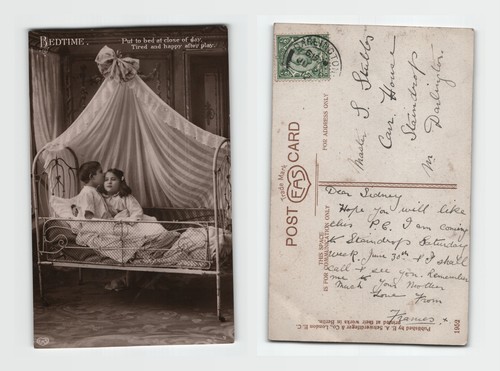 BEDTIME.
Put to bed at close of day,
Tired and happy after play.
EAS
POST CARD
Trade Mark
EAS
FOR ADDRESS ONLY
THIS SPACE
IS FOR COMMUNICATION ONLY
Master S. Stubbs
Carr House
Staindrop
Nr Darlington.
Dear Sidney
Hope you will like
this P.C. I am coming
to Staindrop Saturday
week, June 30th & I shall
call & see you. Remember
me to your Mother
Much Love From
Frances. x
Published by E. A. Schwerdtfeger & Co., London E. C.
Printed at their works in Berlin.
1902